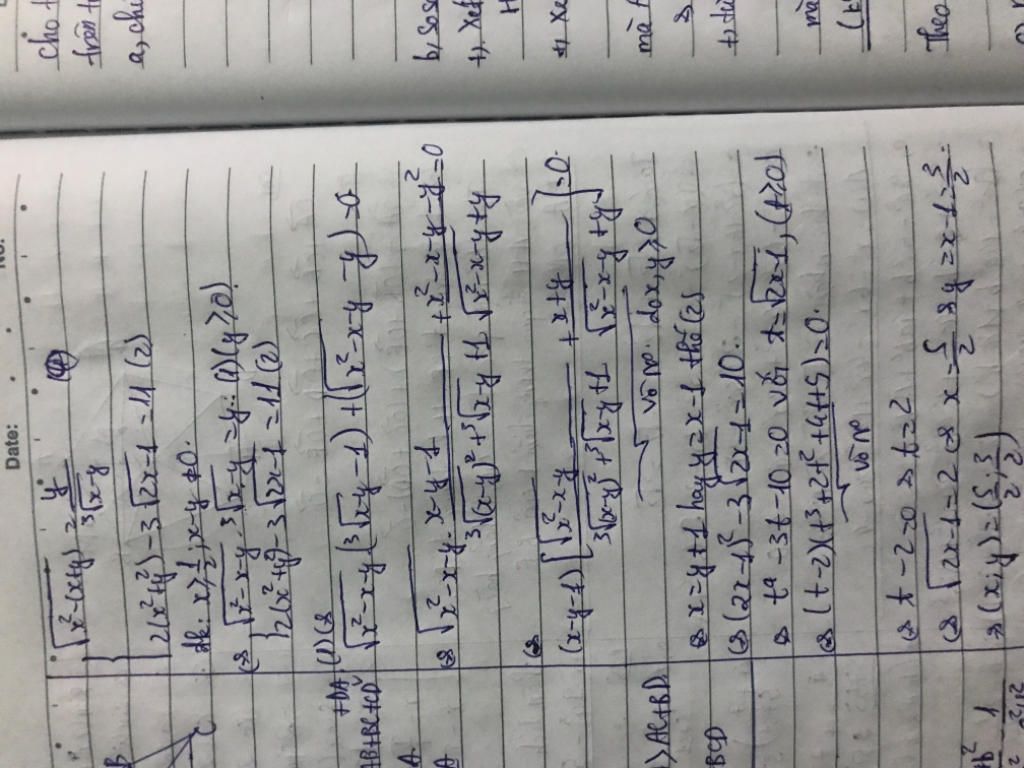 Date:
No:
{ √x²-(x+y) = y/∛x-y (1)
2(x²+y²)-3√2x-1 = 11 (2)
đk: x≥1/2; x-y ≠0.
(=) { √x²-x-y . ∛x-y = y. (1) (y≥0)
2(x²+y²)-3√2x-1 = 11 (2)
(1) (=)
√x²-x-y (∛x-y -1) + (√x²-x-y -y) =0
(=) √x²-x-y . x-y-1/∛(x-y)²+∛x-y+1 + x²-x-y-y²/√x²-x-y+y =0
(=)
(x-y-1)[√x²-x-y/∛(x-y)²+∛x-y+1 + x+y/√x²-x-y+y] =0.
vô no. do x,y≥0
(=) x=y+1 hay y=x-1 thế (2)
(=) (2x-1)²-3√2x-1=10.
(=) t⁴-3t-10=0 với t=√2x-1, (t≥0)
(=) (t-2)(t³+2t²+4t+5)=0.
vô no
(=) t-2=0 => t=2
(=) √2x-1=2 (=) x=5/2 => y=x-1=3/2.
=> (x;y)=(5/2;3/2)
B
C
+DA
AB+BC+CD
A
A
>AC+BD
BCD
cho t
trên t
a, ch
b, so s
+, Xét
H
+, Xé
mà
mà
Theo